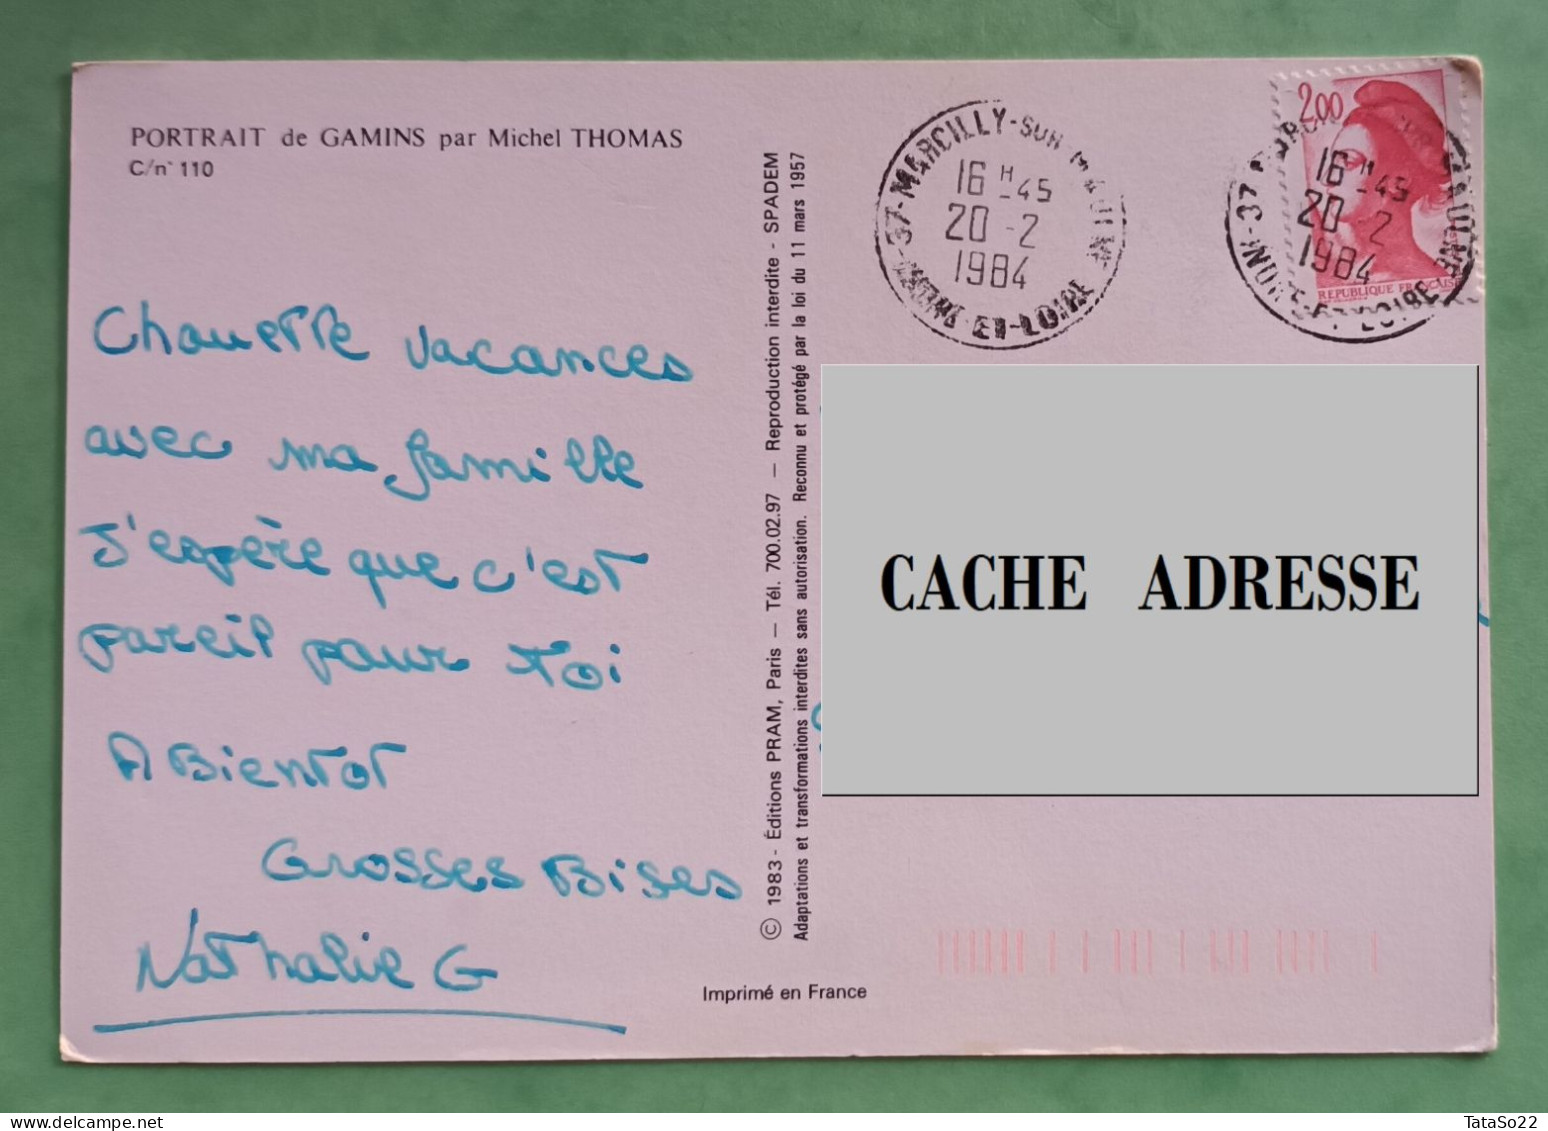 PORTRAIT de GAMINS par Michel THOMAS
C/n° 110
Chouette vacances
avec ma famille
J'espère que c'est
pareil pour toi
A Bientot
Grosses Bises
Nathalie G
© 1983 - Éditions PRAM, Paris — Tél. 700.02.97 — Reproduction interdite - SPADEM
Adaptations et transformations interdites sans autorisation. Reconnu et protégé par la loi du 11 mars 1957
Imprimé en France
37-MARCILLY-SUR-MAULNE
16 H -45
20 -2
1984
INDRE-ET-LOIRE
2,00
REPUBLIQUE FRANÇAISE
37
16 H -45
20 -2
1984
INDRE-ET-LOIRE
CACHE ADRESSE
TataSo22